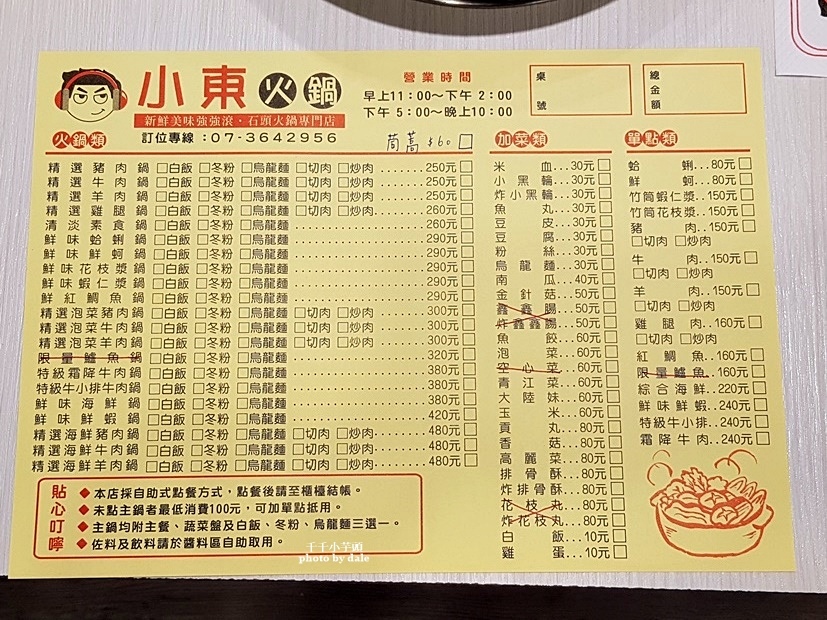 小東火鍋
新鮮美味強強滾・石頭火鍋專門店
訂位專線：07-3642956
營業時間
早上11：00～下午 2：00
下午 5：00～晚上10：00
桌號
總金額
火鍋類
茼蒿 $60 □
精選豬肉鍋 □白飯 □冬粉 □烏龍麵 □切肉 □炒肉........250元□
精選牛肉鍋 □白飯 □冬粉 □烏龍麵 □切肉 □炒肉........250元□
精選羊肉鍋 □白飯 □冬粉 □烏龍麵 □切肉 □炒肉........250元□
精選雞腿鍋 □白飯 □冬粉 □烏龍麵 □切肉 □炒肉........260元□
清淡素食鍋 □白飯 □冬粉 □烏龍麵........260元□
鮮味蛤蜊鍋 □白飯 □冬粉 □烏龍麵........290元□
鮮味鮮蚵鍋 □白飯 □冬粉 □烏龍麵........290元□
鮮味花枝漿鍋 □白飯 □冬粉 □烏龍麵........290元□
鮮味蝦仁漿鍋 □白飯 □冬粉 □烏龍麵........290元□
鮮紅鯛魚鍋 □白飯 □冬粉 □烏龍麵........290元□
精選泡菜豬肉鍋 □白飯 □冬粉 □烏龍麵 □切肉 □炒肉........300元□
精選泡菜牛肉鍋 □白飯 □冬粉 □烏龍麵 □切肉 □炒肉........300元□
精選泡菜羊肉鍋 □白飯 □冬粉 □烏龍麵 □切肉 □炒肉........300元□
限量鱸魚鍋 □白飯 □冬粉 □烏龍麵........320元□
特級霜降牛肉鍋 □白飯 □冬粉 □烏龍麵........380元□
特級牛小排牛肉鍋 □白飯 □冬粉 □烏龍麵........380元□
鮮味海鮮鍋 □白飯 □冬粉 □烏龍麵........380元□
鮮味鮮蝦鍋 □白飯 □冬粉 □烏龍麵........420元□
精選海鮮豬肉鍋 □白飯 □冬粉 □烏龍麵 □切肉 □炒肉........480元□
精選海鮮牛肉鍋 □白飯 □冬粉 □烏龍麵 □切肉 □炒肉........480元□
精選海鮮羊肉鍋 □白飯 □冬粉 □烏龍麵 □切肉 □炒肉........480元□
加菜類
米血...30元□
小黑輪...30元□
炸小黑輪...30元□
魚丸...30元□
豆皮...30元□
豆腐...30元□
粉絲...30元□
烏龍麵...30元□
南瓜...40元□
金針菇...50元□
鑫鑫腸...50元□
炸鑫鑫腸...50元□
魚餃...60元□
泡菜...60元□
空心菜...60元□
青江菜...60元□
大陸妹...60元□
玉米...60元□
貢丸...80元□
香菇...80元□
高麗菜...80元□
排骨酥...80元□
炸排骨酥...80元□
花枝丸...80元□
炸花枝丸...80元□
白飯...10元□
雞蛋...10元□
單點類
蛤蜊...80元□
鮮蚵...80元□
竹筒蝦仁漿..150元□
竹筒花枝漿..150元□
豬肉..150元□
□切肉 □炒肉
牛肉..150元□
□切肉 □炒肉
羊肉..150元□
□切肉 □炒肉
雞腿肉..160元□
□切肉 □炒肉
紅鯛魚..160元□
限量鱸魚..160元□
綜合海鮮..220元□
鮮味鮮蝦..240元□
特級牛小排..240元□
霜降牛肉..240元□
貼心叮嚀
◆本店採自助式點餐方式，點餐後請至櫃檯結帳。
◆未點主鍋者最低消費100元，可加單點抵用。
◆主鍋均附主餐、蔬菜盤及白飯、冬粉、烏龍麵三選一。
◆佐料及飲料請於醬料區自助取用。
千千小芋頭
photo by dale